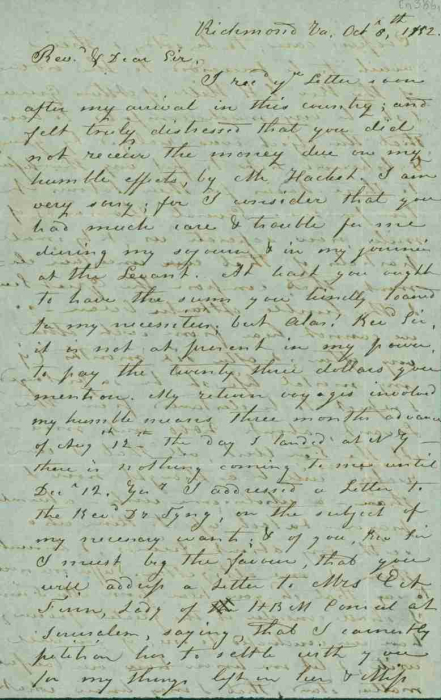 Richmond Va. Oct. 8th, 1852.
Revd. & Dear Sir.
I recd yr Letter soon
after my arrival in this country; and
felt truly distressed that you did
not receive the money due on my
humble effects, by Mr I am
very sorry; for I consider that you
had much care & trouble for me
during my sojourn & in my
at the Levant. At least you ought
to have the sums you kindly loaned
for my necessities; but alas! Rev Sir,
it is not at present in my power,
to pay the twenty three dollars you
mention. My return voyages involved
my humble means three months advance
of Aug 12th the day I landed at N Y—
there is nothing coming to me until
Decr 12. I addressed a Letter to
the Revd Dr Tyng, on the subject of
my necessary wants; & of you, Rev Sir
I must beg the favour, that you
will address a Letter to Mrs
Finn, Lady of H B M Consul at
Jerusalem, saying that I earnestly
petition her to settle with you
for my things left in her & Miss